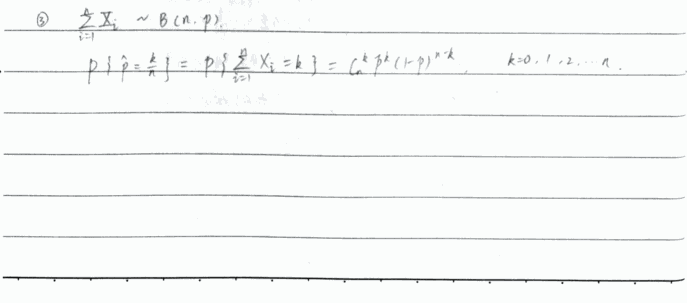 ③ $\sum_{i=1}^{n} X_i \sim B(n, p).$
$P\{\hat{p} = \frac{k}{n}\} = P\{\sum_{i=1}^{n} X_i = k\} = C_n^k p^k (1-p)^{n-k}, \quad k=0, 1, 2, \cdots n.$